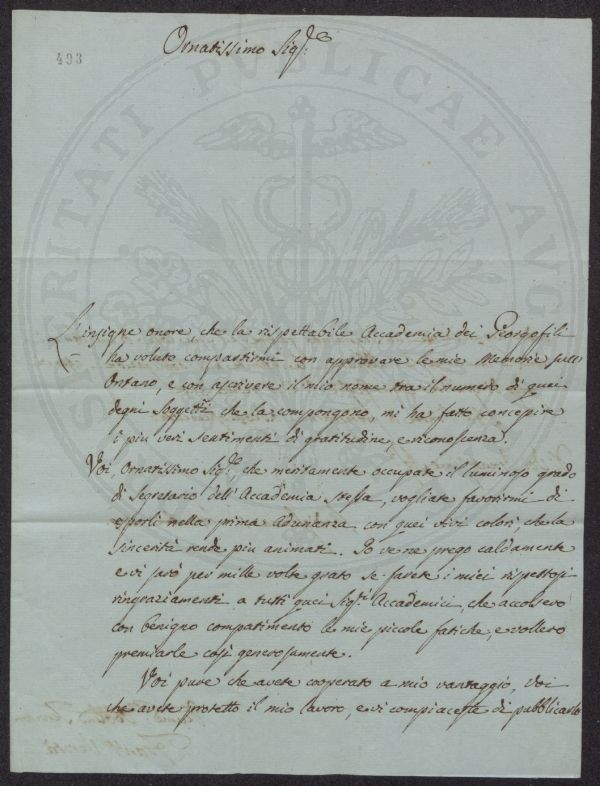 493
Ornatissimo Sig.re
L'insigne onore, che la rispettabile Accademia dei Georgofili
ha voluto compartirmi con approvare le mie Memorie sull'
Ontano, e con ascrivere il mio nome tra il numero di quei
degni Soggetti che la compongono, mi ha fatto concepire
i piu veri sentimenti di gratitudine, e riconoscenza.
Voi Ornatissimo Sig.re, che meritamente occupate il luminoso grado
di Segretario dell'Accademia stessa, vogliate favorirmi di
esporli nella prima Adunanza con quei vivi colori, che la
sincerità rende piu animati. Io ve ne prego caldamente
e vi sarò per mille volte grato se farete i miei rispettosi
ringraziamenti a tutti quei Sig.ri Accademici che accolsero
con benigno compatimento le mie piccole fatiche, e vollero
premiarle così generosamente.
Voi pure che avete cooperato a mio vantaggio, Voi
che avete protetto il mio lavoro, e vi compiaceste di pubblicarlo
PROSPERITATI PUBLICAE AUG